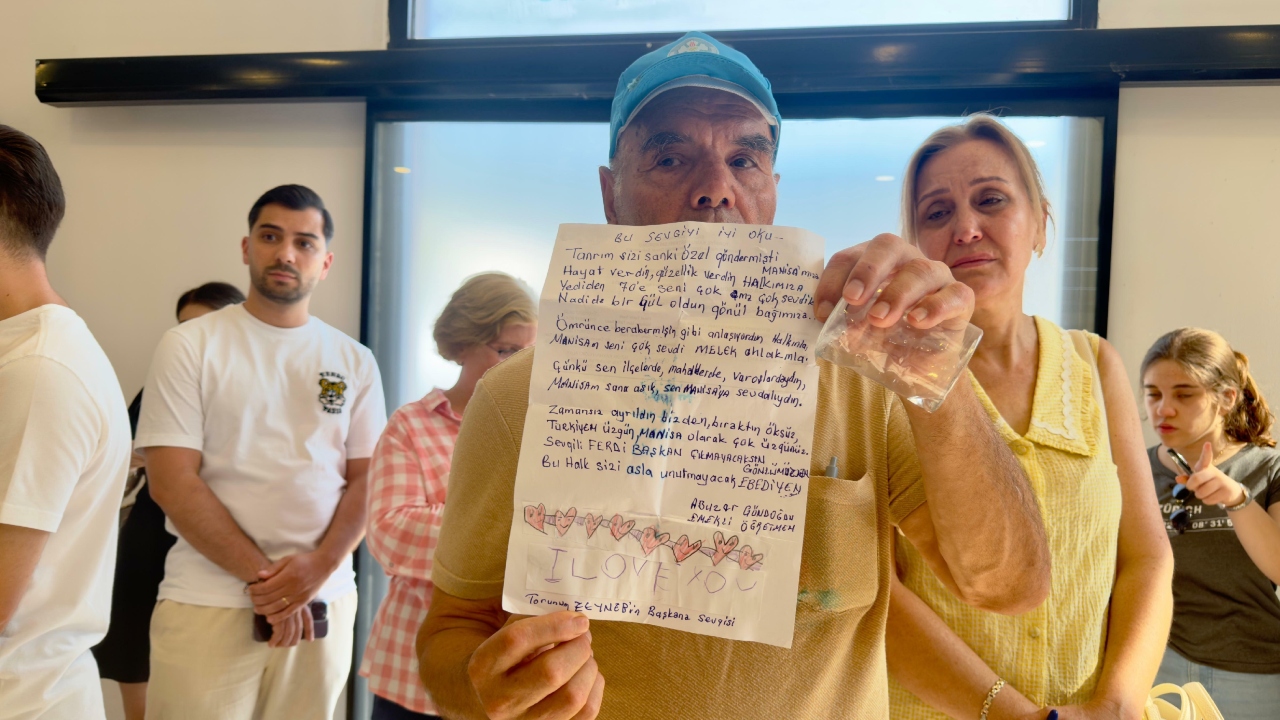 BU SEVGİYİ İYİ OKU...
Tanrım sizi sanki özel göndermişti MANİSA'mıza
Hayat verdin, güzellik verdin HALKIMIZA
Yediden 70'e seni çok çok sevdik
Nadide bir gül oldun gönül bağımıza.
Ömrünce berabermişin gibi anlaşıyordun Halkınla,
MANİSAM seni çok sevdi MELEK ahlakınla.
Çünkü sen ilçelerde, mahallerde, varoşlardaydın,
MANİSAM sana aşık, sen MANİSA'YA sevdalıydın.
Zamansız ayrıldın bizden, bıraktın öksüz,
TÜRKİYEM üzgün, MANİSA olarak çok üzgünüz.
Sevgili FERDİ BAŞKAN ÇIKMAYACAKSIN GÖNLÜMÜZDEN
Bu Halk sizi asla unutmayacak EBEDİYEN
ABUZER GÜNDOĞAN
EMEKLİ ÖĞRETMEN
I LOVE YOU
Torunum ZEYNEB'in Başkana sevgisi
PARIS
08°31'5